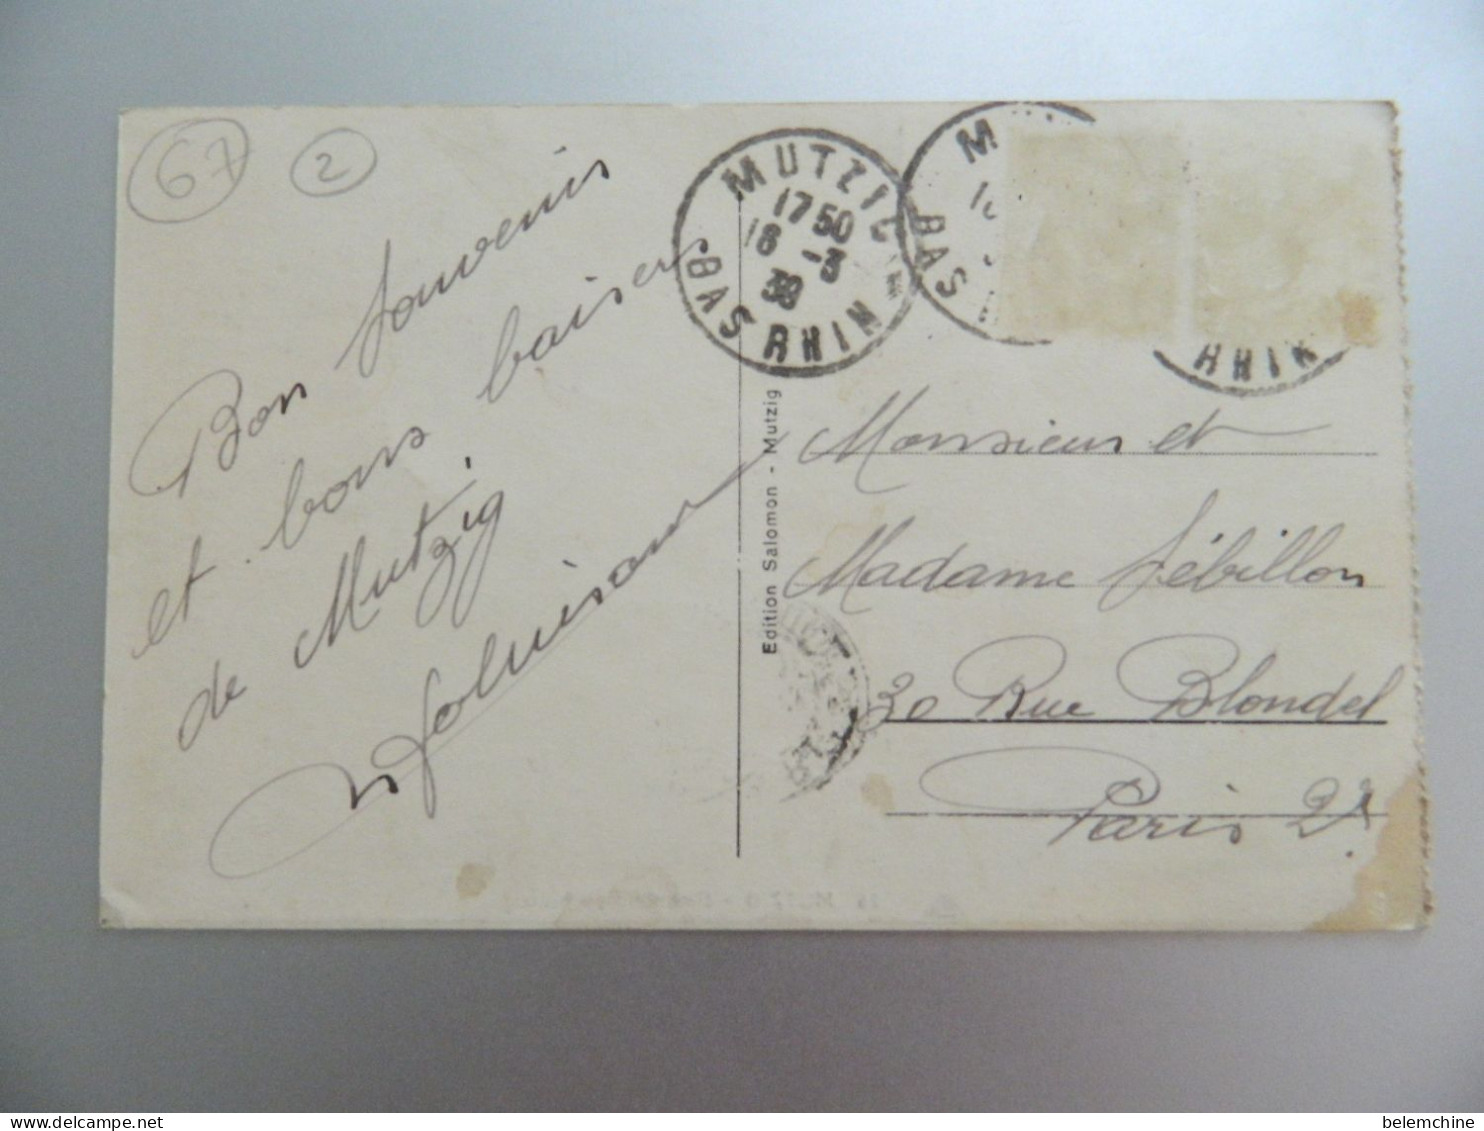 67
2
Bon souvenir
et bons baisers
de Mutzig
MUTZIG
17 50
18 -3
38
BAS RHIN
M
BAS
RHIN
Edition Salomon - Mutzig
Monsieur et
Madame Sébillon
30 Rue Blondel
Paris 2e
belemchine